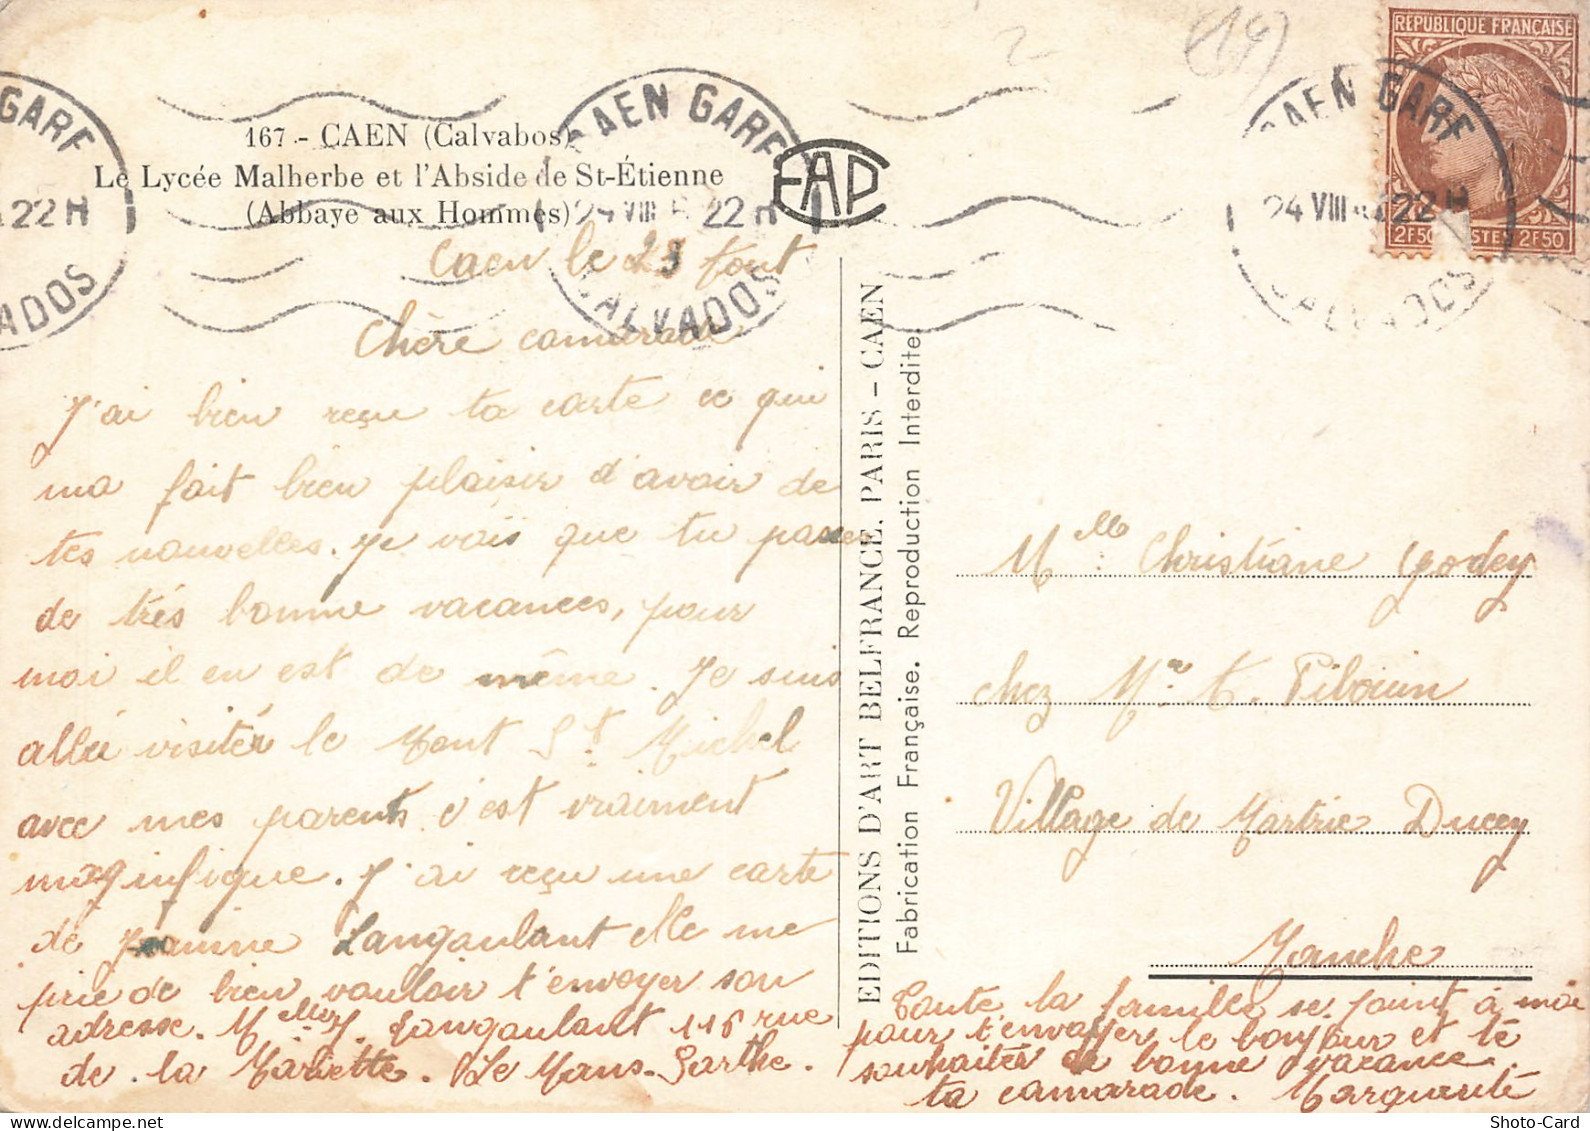 167. - CAEN (Calvabos)
Le Lycée Malherbe et l'Abside de St-Étienne
(Abbaye aux Hommes)
EAP
CAEN GARE
24 VIII 22 H
CALVADOS
CAEN GARE
24 VIII 22 H
CALVADOS
GARE
22 H
ADOS
REPUBLIQUE FRANÇAISE
2F50 POSTES 2F50
(14)
Caen le 23 Aout
Chère camarade
J'ai bien reçu ta carte ce qui
ma fait bien plaisir d'avoir de
tes nouvelles. Je vois que tu passes
de très bonne vacances, pour
moi il en est de même. Je suis
allée visiter le Mont St Michel
avec mes parents c'est vraiment
magnifique. J'ai reçu une carte
de Jeanine Langoulant elle me
prie de bien vouloir t'envoyer son
adresse. Melle J. Langoulant 116 rue
de la Mariette. Le Mans. Sarthe.
EDITIONS D'ART BELFRANCE, PARIS - CAEN
Fabrication Française. Reproduction Interdite.
Melle Christiane Godey
chez Mr. t. Pibouin
Village de Martrie Ducey
Manche
Toute la famille se joint à moi
pour t'envoyer le bonjour et te
souhaiter de bonne vacance
ta camarade. Marguerite
Shoto-Card